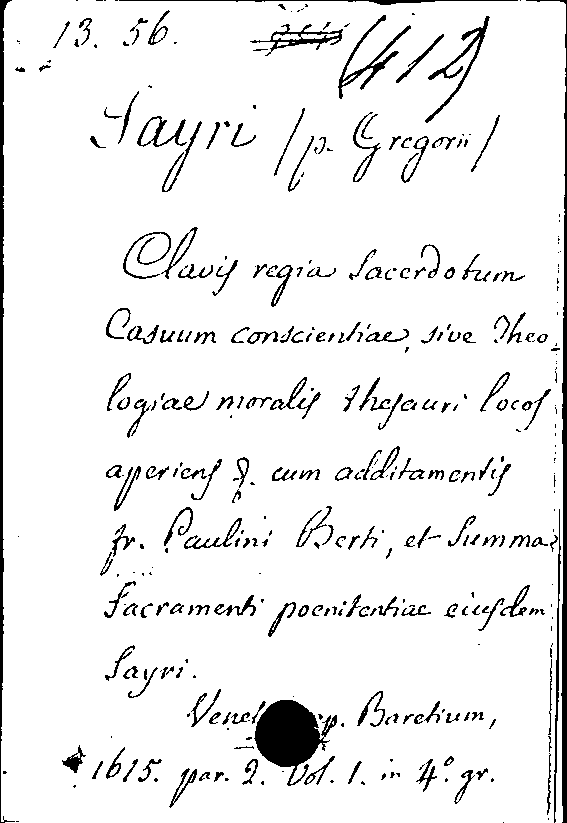 13. 56. (412)
Sayri /p. Gregorii/
Clavis regia Sacerdotum
Casuum conscientiae, sive Theo-
logiae moralis thesauri locos
aperiens &. cum additamentis
fr. Paulini Berti, et Summa
Sacramenti poenitentiae eiusdem
Sayri.
Baretium,
1615. par. 2. Vol. 1. in 4º. gr.